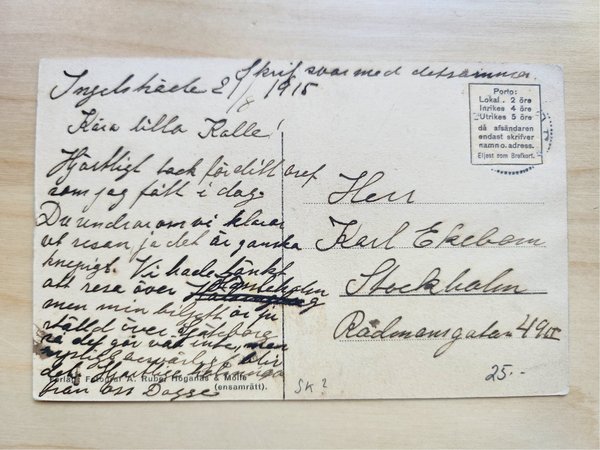 Skrif svar med detsamma.
Ingelsträde 2/8 1915
Kära lilla Kalle!
Hjärtligt tack för ditt bref
som jag fått i dag.
Du undrar om vi klarar
resan ja det är ganska
knepigt. Vi hade tänkt
att resa över
men min biljett är
ställd över Göteborg
så det gör väl inte, men
blir
det. Hjärtliga
från oss Dagge
Porto:
Lokal.. 2 öre
Inrikes 4 öre
Utrikes 5 öre
då afsändaren
endast skrifver
namn o. adress.
Eljest som Brefkort.
Herr
Karl Ekebom
Stockholm
Rådmansgatan 49 III
25.-
SK 2
Förlag: Fotograf A. Ruber Höganäs & Mölle
(ensamrätt).